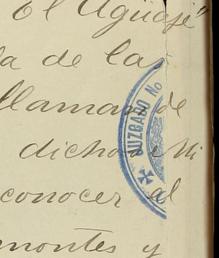 el Aguaje"
la de las
llaman de
dicho
conocer al
montes y
JUZGADO No